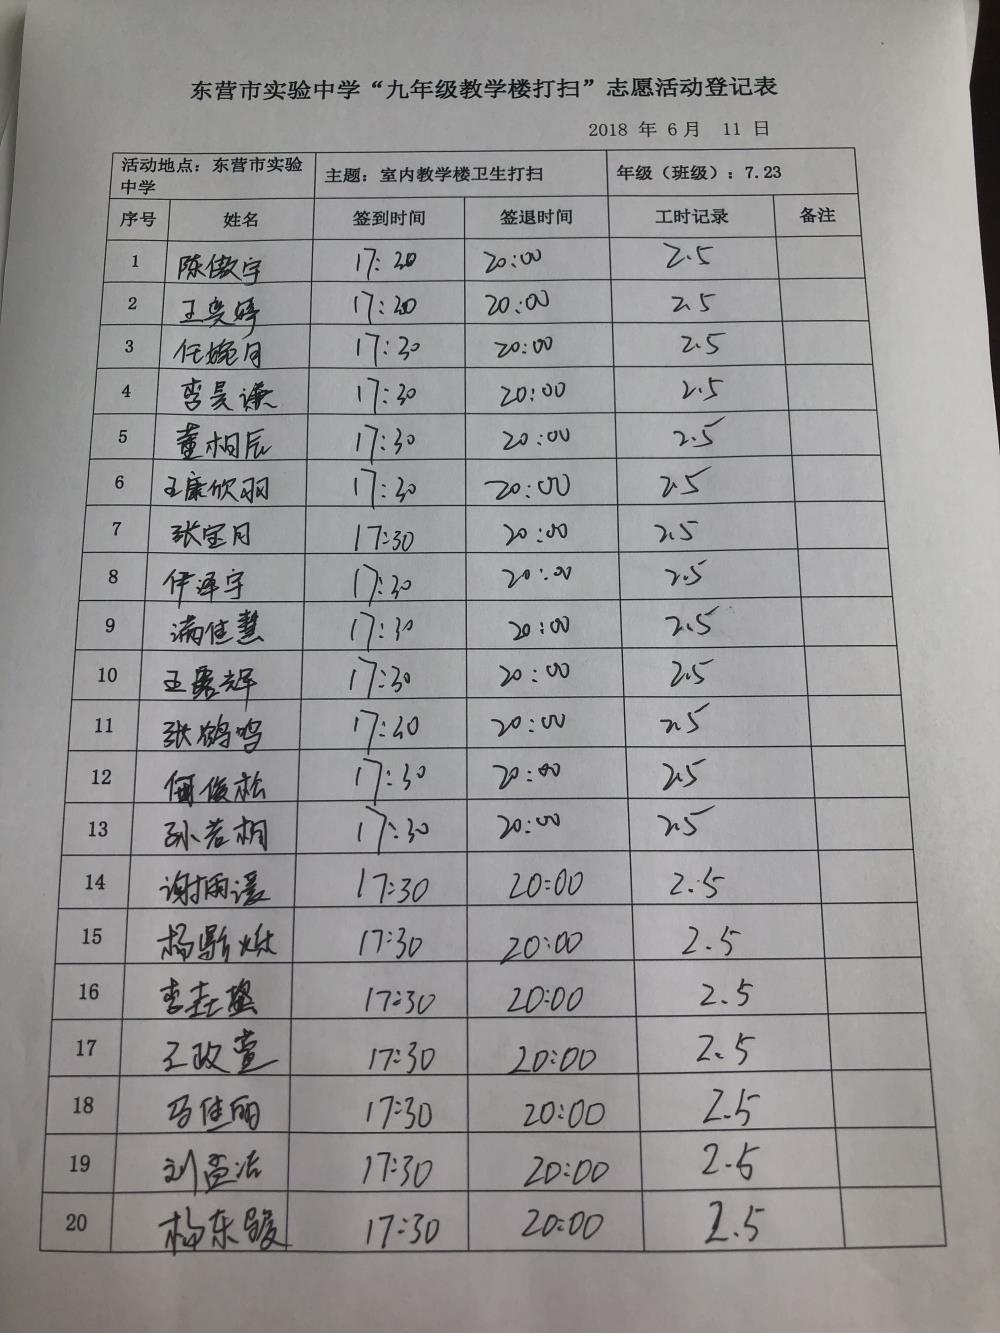 东营市实验中学“九年级教学楼打扫”志愿活动登记表
2018 年 6 月 11 日
活动地点：东营市实验
中学 主题：室内教学楼卫生打扫 年级（班级）：7.23
序号 姓名 签到时间 签退时间 工时记录 备注
1 陈傲宇 17:30 20:00 2.5
2 王奕婷 17:30 20:00 2.5
3 任婉月 17:30 20:00 2.5
4 李昊谦 17:30 20:00 2.5
5 董相辰 17:30 20:00 2.5
6 王康欣羽 17:30 20:00 2.5
7 张宝月 17:30 20:00 2.5
8 伊泽宇 17:30 20:00 2.5
9 满佳慧 17:30 20:00 2.5
10 王露辉 17:30 20:00 2.5
11 张鹤鸣 17:30 20:00 2.5
12 何俊松 17:30 20:00 2.5
13 孙若桐 17:30 20:00 2.5
14 谢雨湲 17:30 20:00 2.5
15 杨 17:30 20:00 2.5
16 李 17:30 20:00 2.5
17 王政萱 17:30 20:00 2.5
18 马佳丽 17:30 20:00 2.5
19 刘孟洁 17:30 20:00 2.5
20 杨东骏 17:30 20:00 2.5